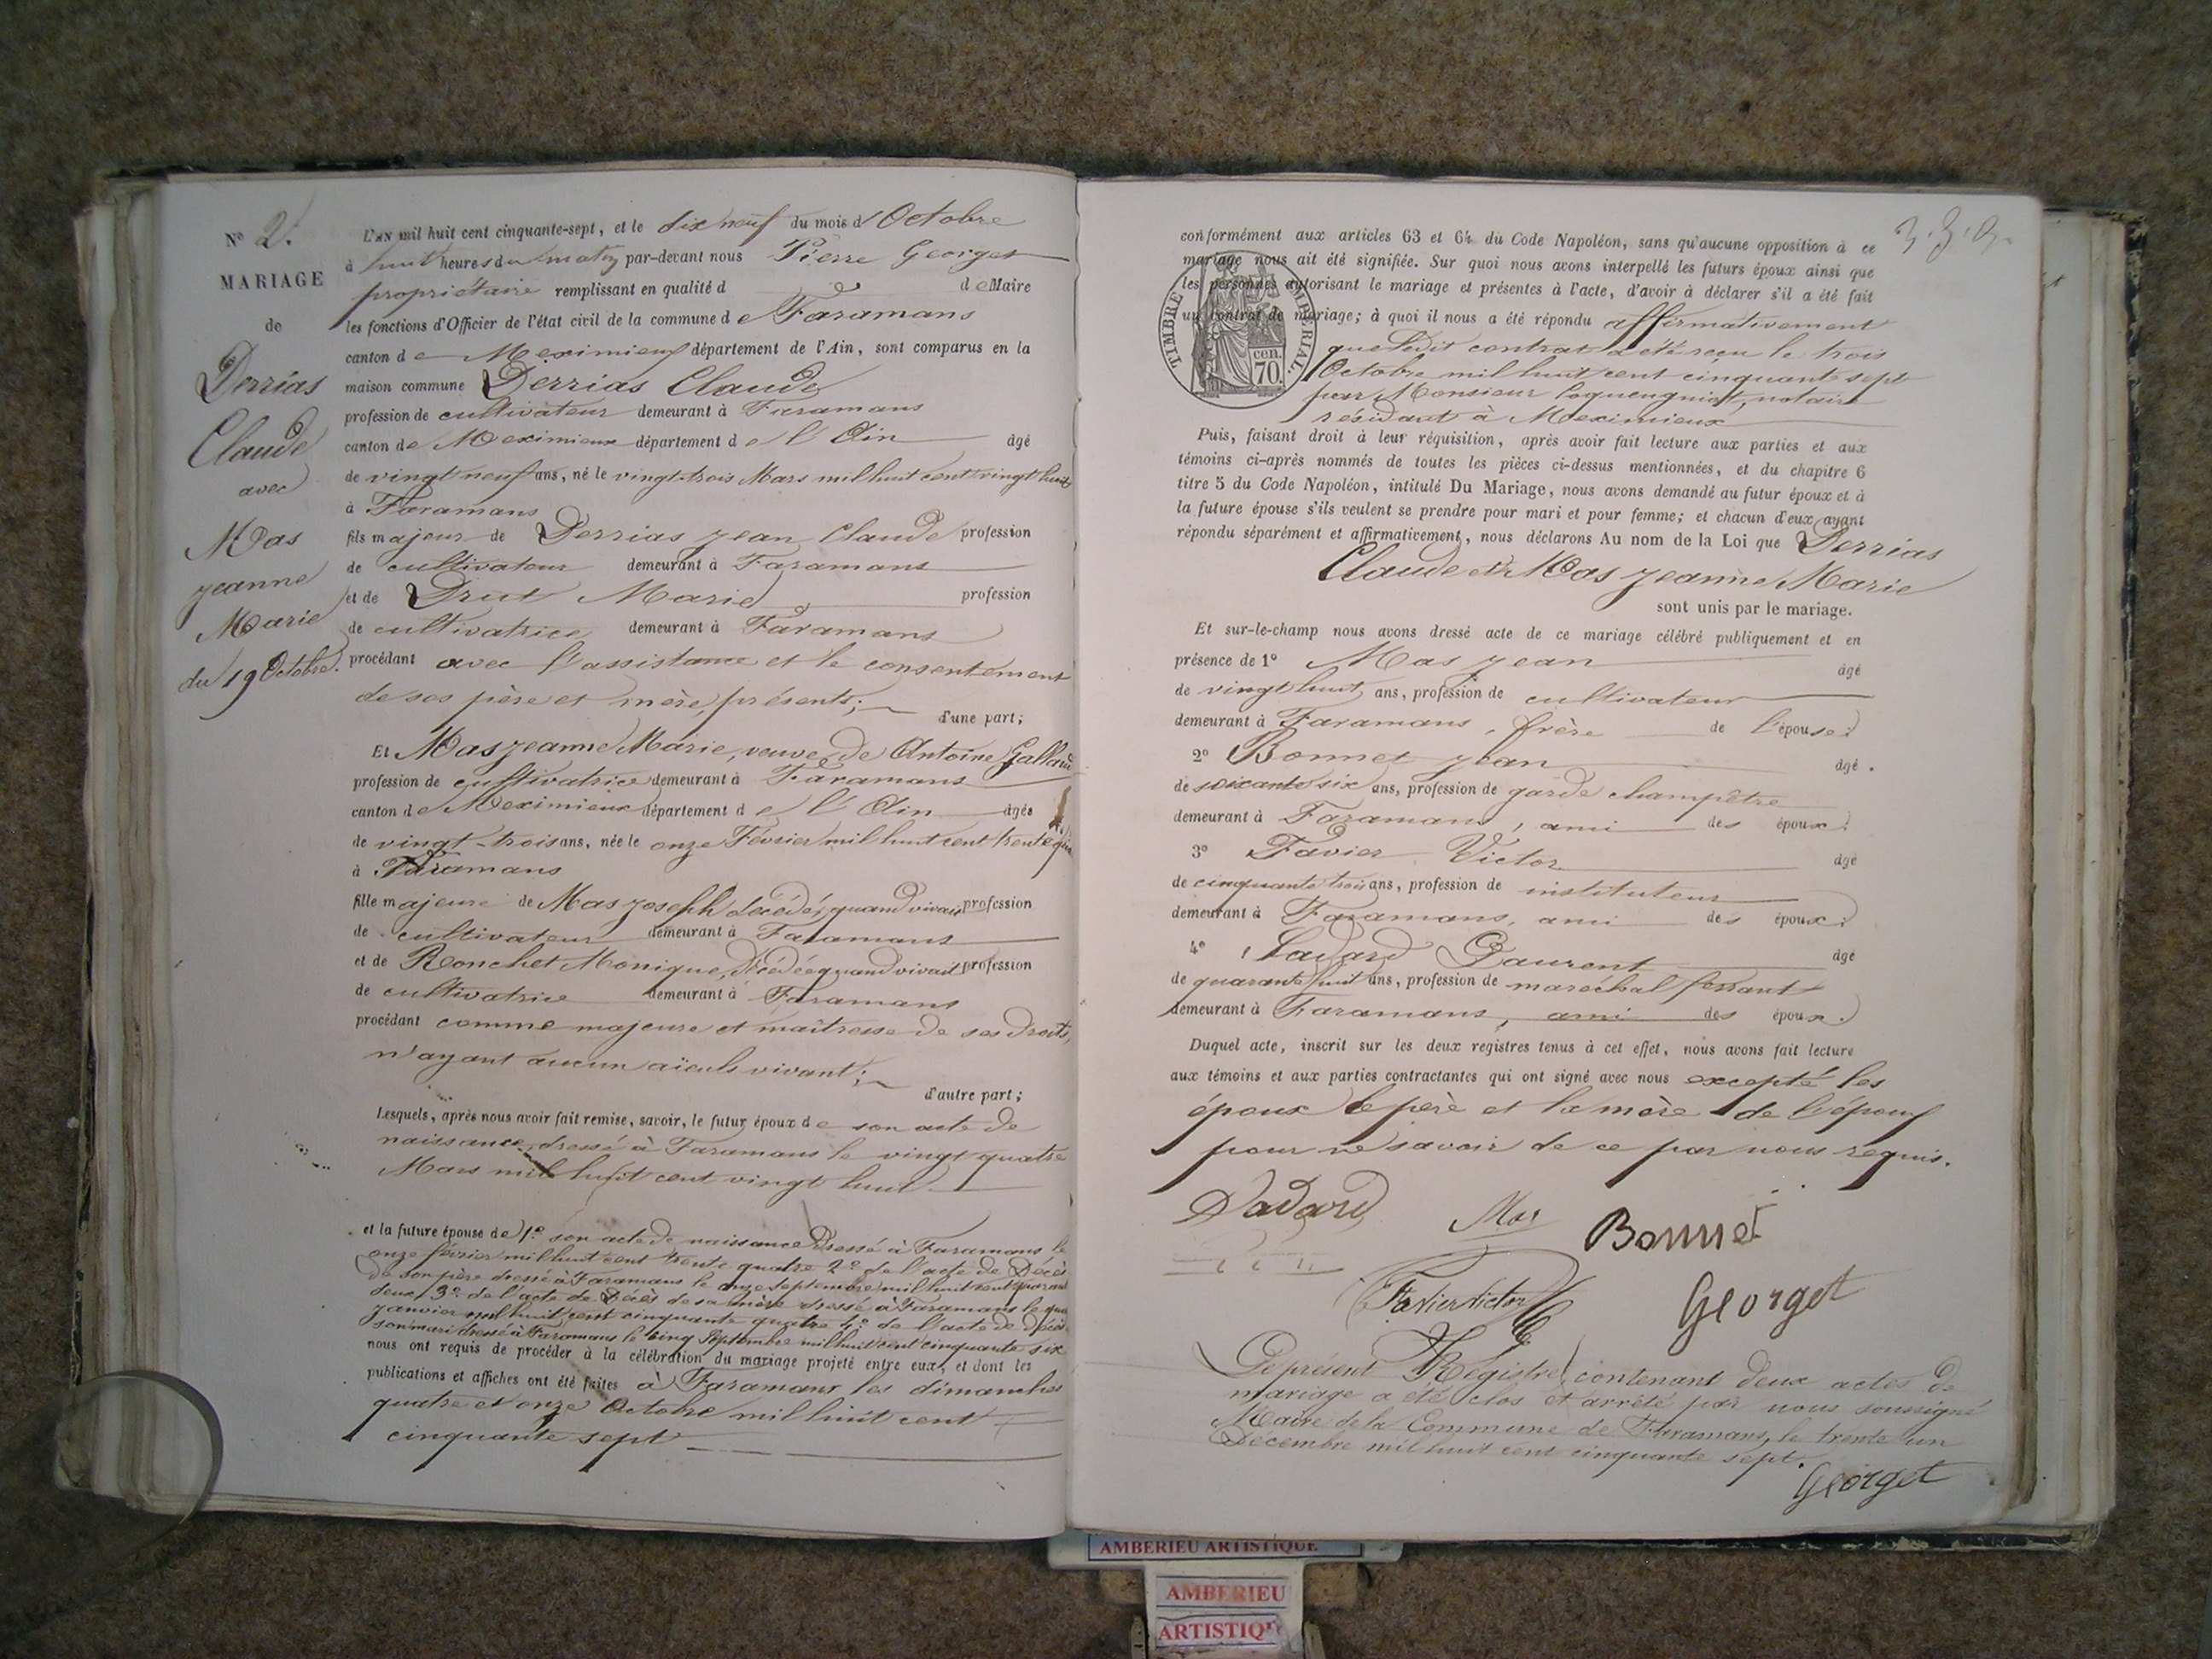 N° 2.
MARIAGE
de
Derrias
Claude
avec
Mas
jeanne
Marie
du 19 Octobre.
L'AN mil huit cent cinquante-sept, et le dix neuf du mois d'Octobre
à huit heures du matin par-devant nous Pierre Georget
propriétaire remplissant en qualité d de Maire
les fonctions d'Officier de l'état civil de la commune de Faramans
canton de Meximieux département de l'Ain, sont comparus en la
maison commune Derrias Claude
profession de cultivateur demeurant à Faramans
canton de Meximieux département de l'Ain âgé
de vingt neuf ans, né le vingt-trois Mars mil huit cent vingt huit
à Faramans
fils majeur de Derrias jean Claude profession
de cultivateur demeurant à Faramans
et de Drut Marie profession
de cultivatrice demeurant à Faramans
procédant avec l'assistance et le consentement
de ses père et mère, présents;
d'une part;
Et Mas jeanne Marie, veuve de Antoine Galland
profession de cultivatrice demeurant à Faramans
canton de Meximieux département de l'Ain âgée
de vingt-trois ans, née le onze Février mil huit cent trente
à Faramans
fille majeure de Mas joseph décédé, quand vivait profession
de cultivateur demeurant à Faramans
et de Ronchet Monique, décédée quand vivait profession
de cultivatrice demeurant à Faramans
procédant comme majeure et maîtresse de ses droits,
n'ayant aucun aïeuls vivant;
d'autre part;
Lesquels, après nous avoir fait remise, savoir, le futur époux de son acte de
naissance, dressé à Faramans le vingt quatre
Mars mil huit cent vingt huit
et la future épouse de 1° son acte de naissance dressé à Faramans le
onze février mil huit cent trente quatre 2° de l'acte de Décès
de son père dressé à Faramans le onze Septembre mil huit cent quarante
deux, 3° de l'acte de Décès de sa mère dressé à Faramans le
janvier mil huit cent cinquante quatre 4° de l'acte de décès
son mari dressé à Faramans le cinq Septembre mil huit cent cinquante six
nous ont requis de procéder à la célébration du mariage projeté entre eux, et dont les
publications et affiches ont été faites à Faramans les dimanches
quatre et onze Octobre mil huit cent
cinquante sept
conformément aux articles 63 et 64 du Code Napoléon, sans qu'aucune opposition à ce
mariage nous ait été signifiée. Sur quoi nous avons interpellé les futurs époux ainsi que
les personnes autorisant le mariage et présentes à l'acte, d'avoir à déclarer s'il a été fait
un contrat de mariage; à quoi il nous a été répondu affirmativement
que ledit contrat a été reçu le trois
Octobre mil huit cent cinquante sept
par Monsieur notaire
résidant à Meximieux
TIMBRE IMPERIAL.
cen.
70.
Puis, faisant droit à leur réquisition, après avoir fait lecture aux parties et aux
témoins ci-après nommés de toutes les pièces ci-dessus mentionnées, et du chapitre 6
titre 5 du Code Napoléon, intitulé Du Mariage, nous avons demandé au futur époux et à
la future épouse s'ils veulent se prendre pour mari et pour femme; et chacun d'eux ayant
répondu séparément et affirmativement, nous déclarons Au nom de la Loi que Derrias
Claude et Mas jeanne Marie
sont unis par le mariage.
Et sur-le-champ nous avons dressé acte de ce mariage célébré publiquement et en
présence de 1° Mas jean âgé
de vingt huit ans, profession de cultivateur
demeurant à Faramans, frère de l'épouse.
2° Bonnet jean âgé
de soixante six ans, profession de garde champêtre
demeurant à Faramans, ami des époux.
3° Favier Victor âgé
de cinquante trois ans, profession de instituteur
demeurant à Faramans, ami des époux.
4° Ladard Laurent âgé
de quarante huit ans, profession de maréchal ferrant
demeurant à Faramans, ami des époux.
Duquel acte, inscrit sur les deux registres tenus à cet effet, nous avons fait lecture
aux témoins et aux parties contractantes qui ont signé avec nous excepté les
époux le père et la mère de l'époux
pour ne savoir de ce par nous requis.
Ladard Mas Bonnet
Favier Victor Georget
Le présent Régistre contenant deux actes de
mariage a été clos et arrêté par nous soussigné
Maire de la Commune de Faramans, le trente un
Décembre mil huit cent cinquante sept.
Georget
AMBERIEU ARTISTIQUE
AMBERIEU
ARTISTIQ